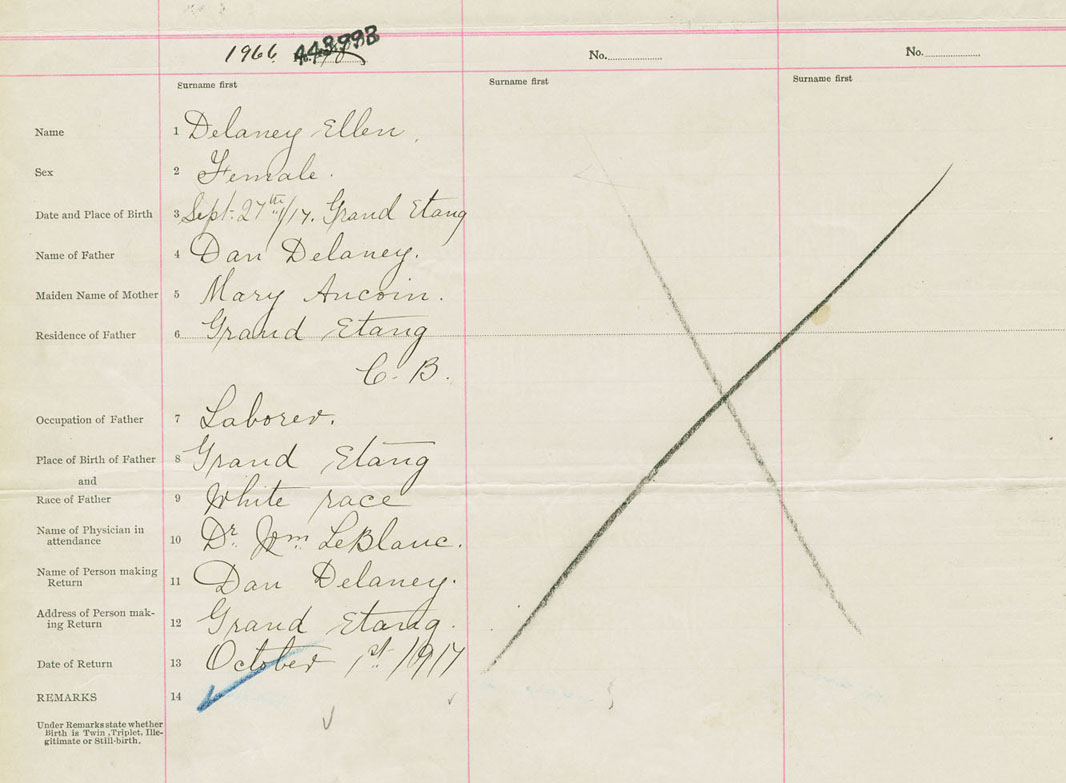 1966
No. No.
Surname first Surname first Surname first
Name 1 Delaney Ellen.
Sex 2 Female.
Date and Place of Birth 3 Sept. 27th /17. Grand Etang
Name of Father 4 Dan Delaney.
Maiden Name of Mother 5 Mary Aucoin.
Residence of Father 6 Grand Etang
C. B.
Occupation of Father 7 Laborer.
Place of Birth of Father 8 Grand Etang
and
Race of Father 9 White race
Name of Physician in
attendance 10 Dr. Wm. LeBlanc.
Name of Person making
Return 11 Dan Delaney.
Address of Person mak-
ing Return 12 Grand Etang.
Date of Return 13 October 1st. /1917
REMARKS 14
Under Remarks state whether
Birth is Twin, Triplet, Ille-
gitimate or Still-birth.